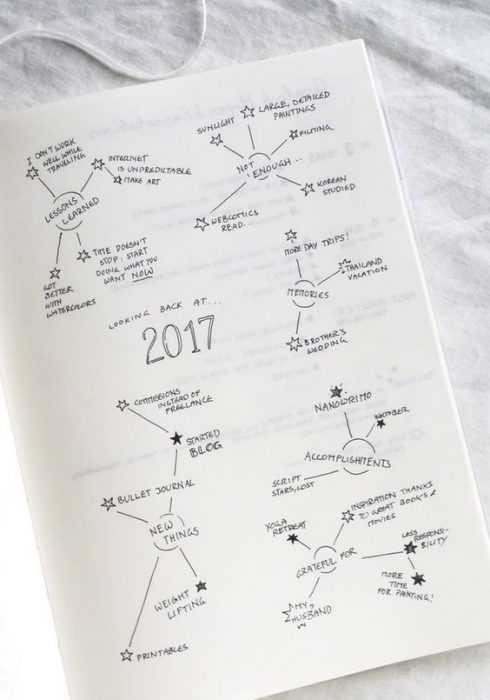 I CAN'T WORK
WELL WHILE
TRAVELING
INTERNET
IS UNPREDICTABLE
MAKE ART
LESSONS
LEARNED
TIME DOESN'T
STOP; START
DOING WHAT YOU
WANT NOW
GOT
BETTER
WITH
WATERCOLORS
SUNLIGHT
LARGE, DETAILED
PAINTINGS
FILMING
NOT
ENOUGH...
KOREAN
STUDIED
WEBCOMICS
READ...
MORE DAY TRIPS!
THAILAND
VACATION
MEMORIES
BROTHER'S
WEDDING
LOOKING BACK AT...
2017
COMMISSIONS
INSTEAD OF
FREELANCE
STARTED
BLOG
BULLET JOURNAL
NEW
THINGS
WEIGHT
LIFTING
PRINTABLES
NANOWRIMO
INKTOBER
ACCOMPLISHMENTS
SCRIPT
STARS, LOST
INSPIRATION THANKS
TO GREAT BOOKS &
MOVIES
YOGA
RETREAT
LESS
RESPONSI-
BILITY
GRATEFUL FOR
MORE
TIME
FOR PAINTING!
MY
HUSBAND